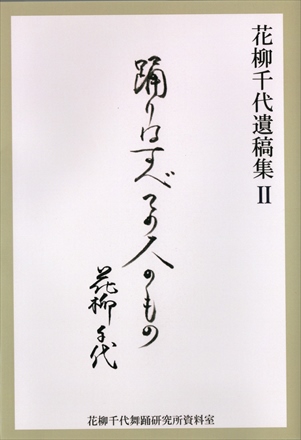 花柳千代遺稿集Ⅱ
踊りはすべての人のもの
花柳千代
花柳千代舞踊研究所資料室